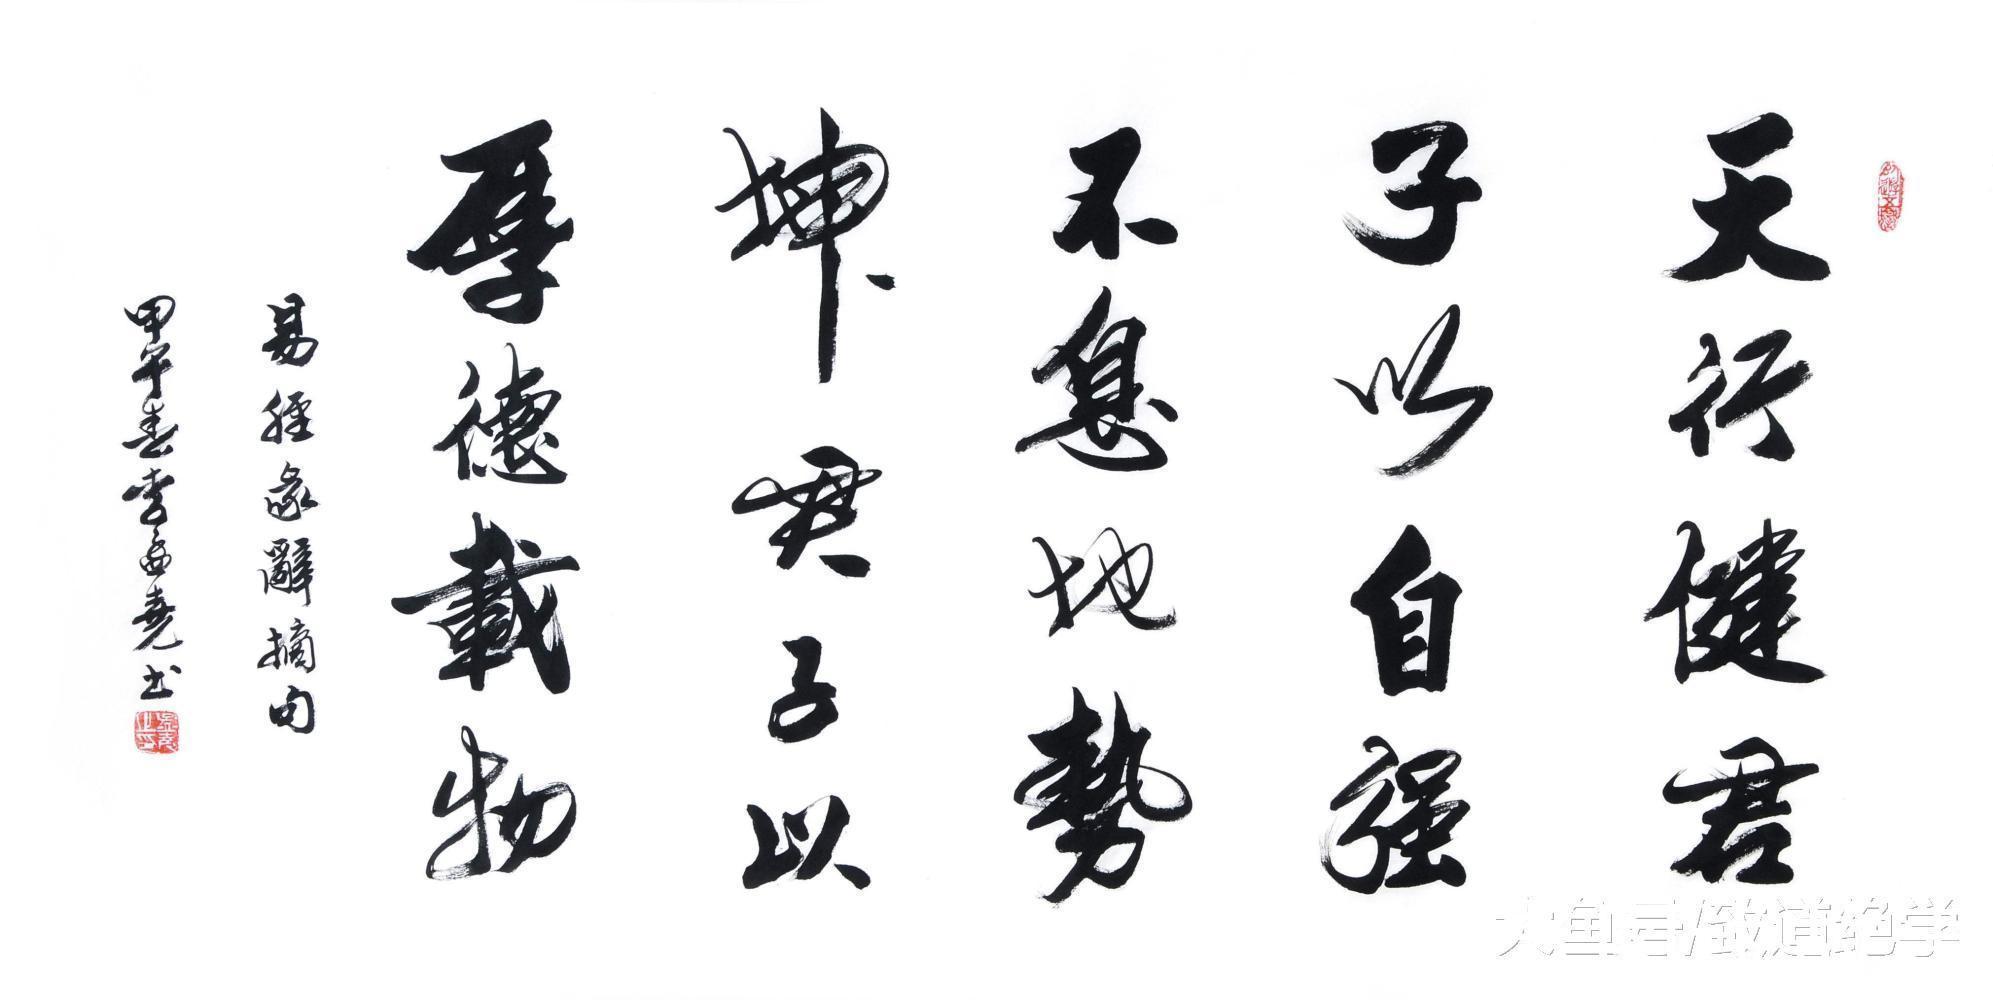 天行健君
子以自强
不息地勢
坤君子以
厚德載物
易經彖辭摘句
甲午春李堯书
大鱼号/致道绝学